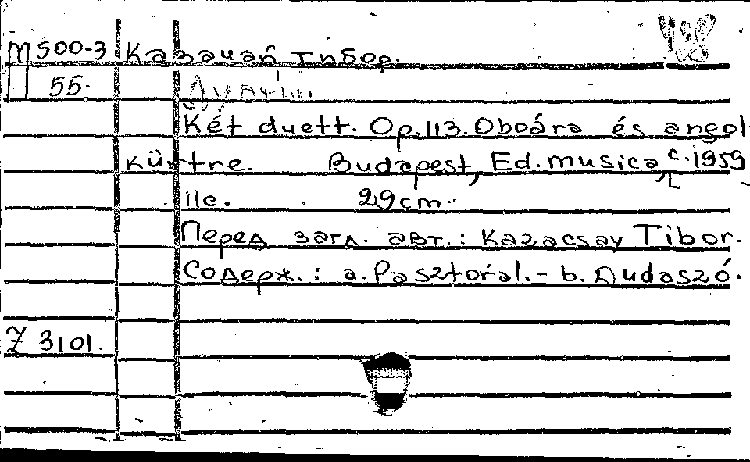 М 500-3 Казачай Тибор.
55.
Két duett. Op.113. Oboára és angol
kürtre. Budapest, Ed. musica, c. 1959
11c. 29cm.
Перед загл. авт.: Kazacsay Tibor.
Содерж.: a. Pasztorál. - b. Dudaszó.
Z 3101.